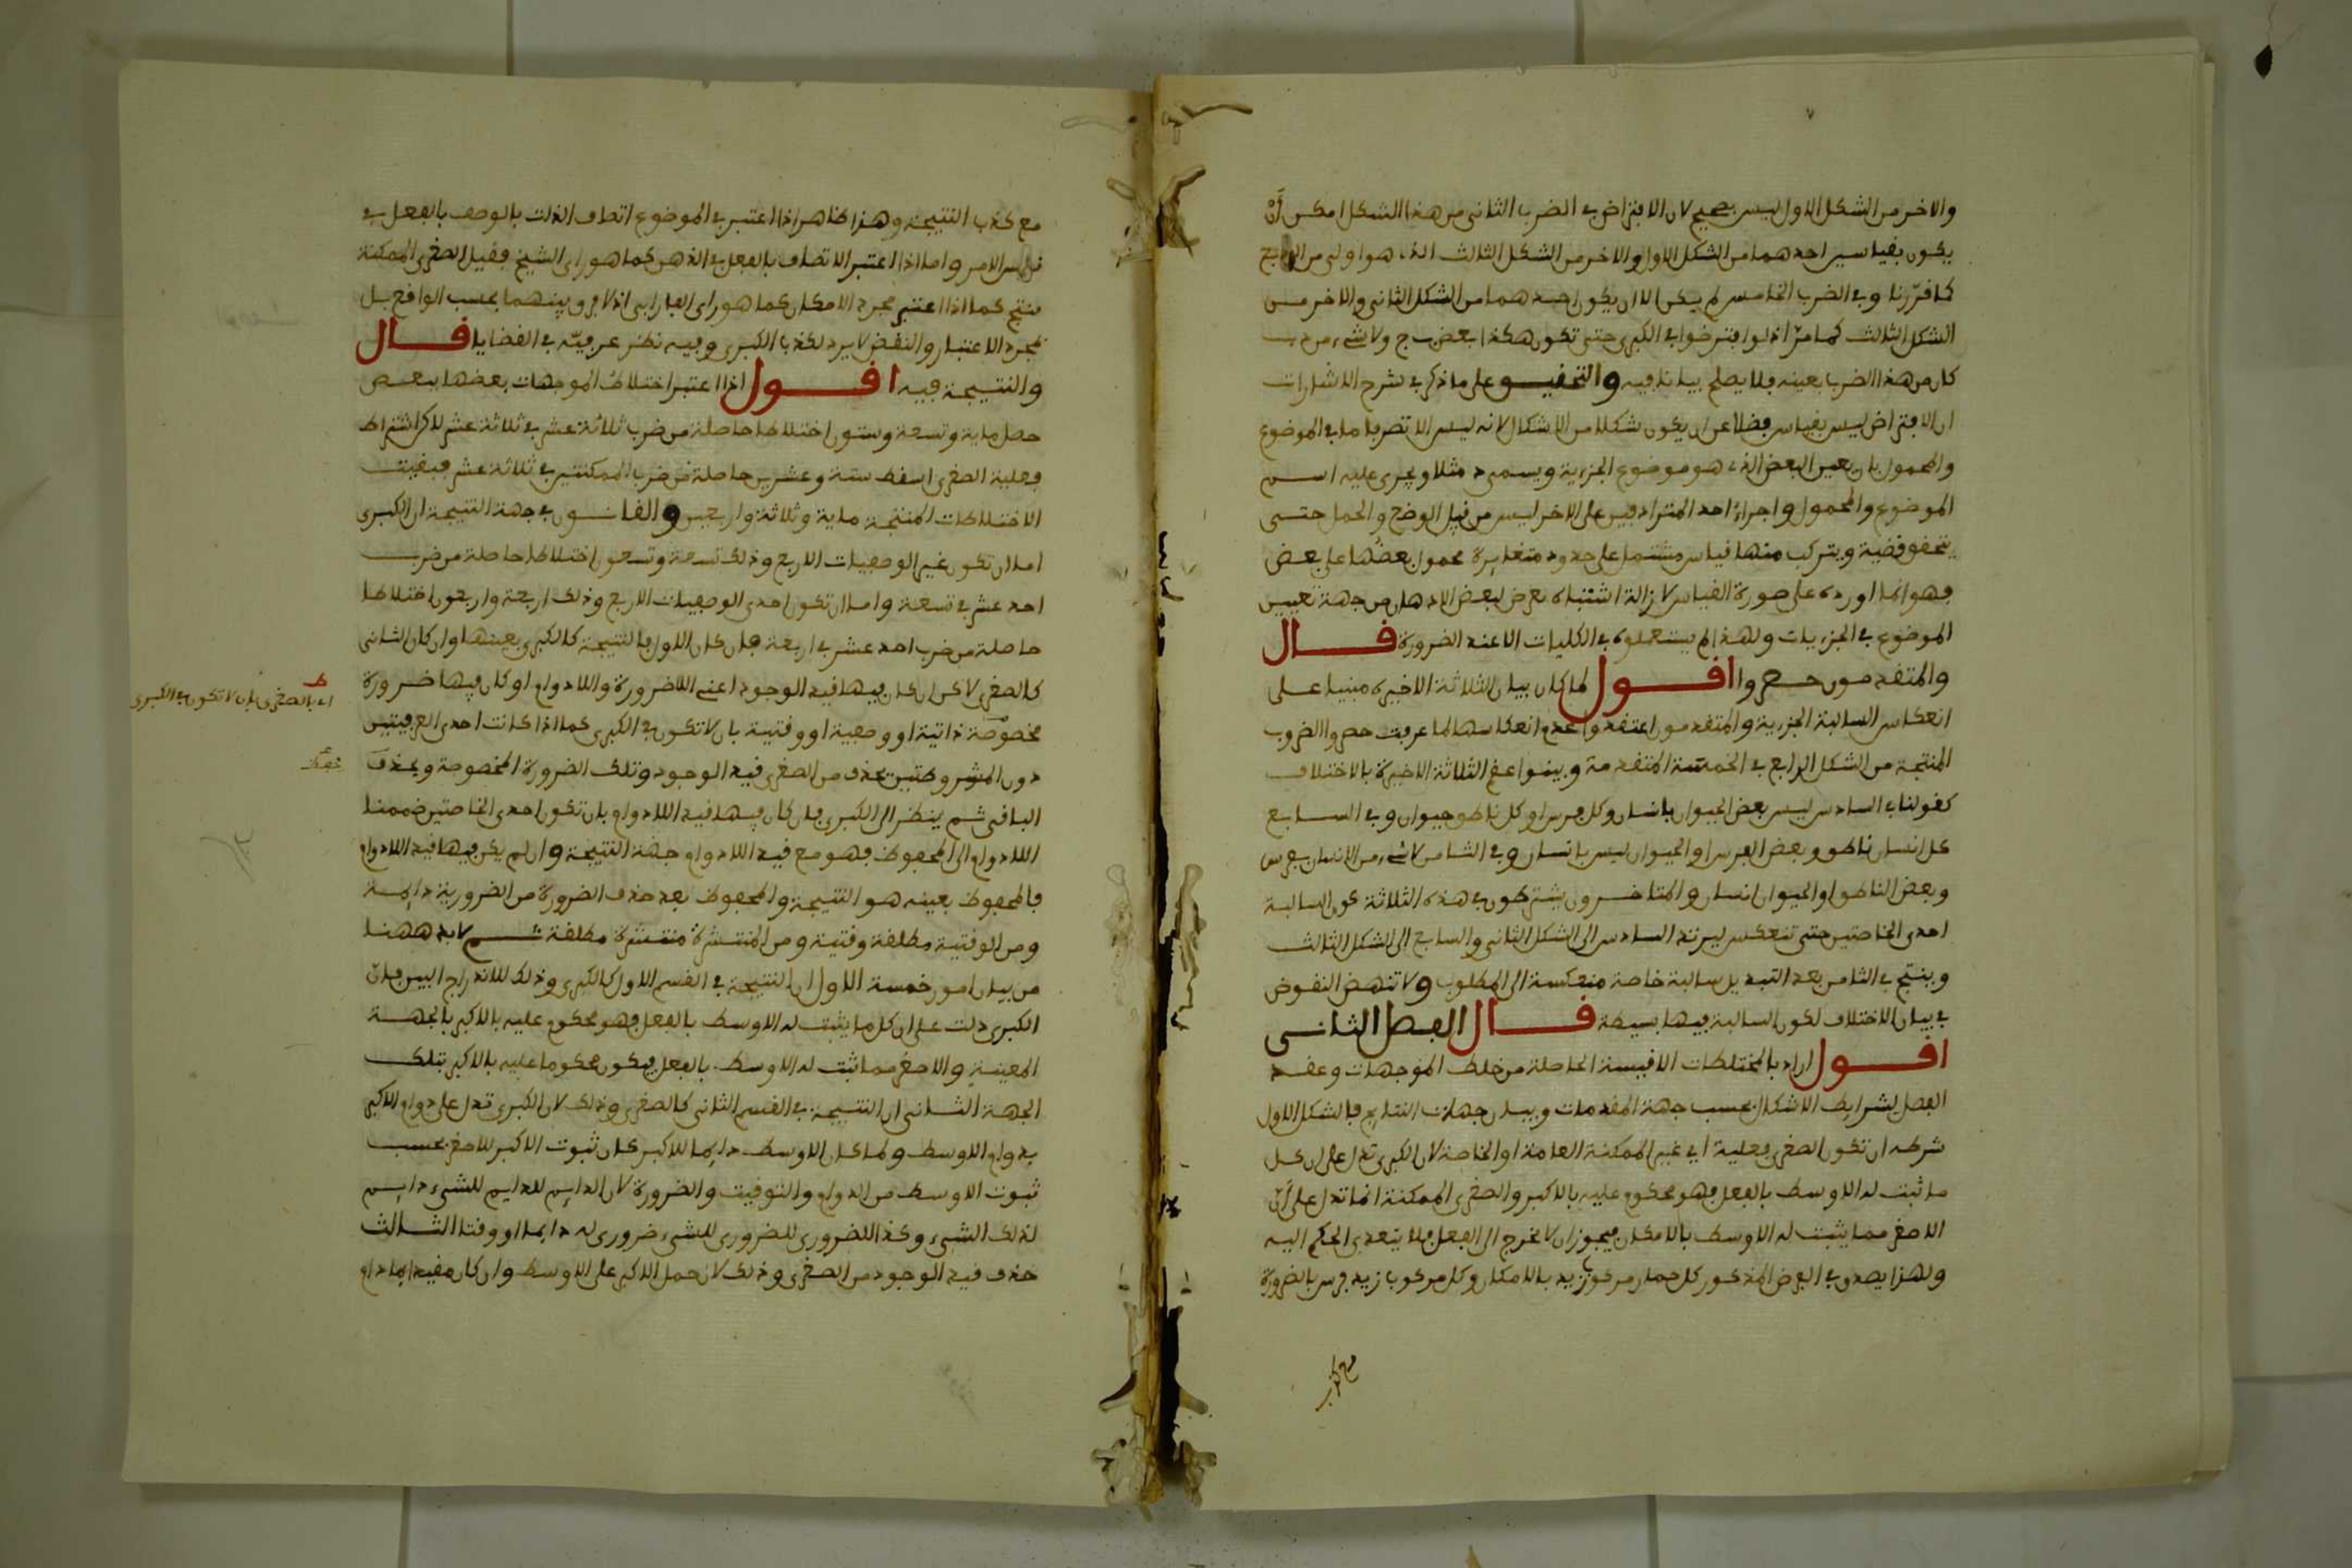 والاخر من الشكل الاول ليس بصحيح لان الافتراض في الضرب الثاني من هذا الشكل امكن أنْ
يكون بقياسين احدهما من الشكل الاول والاخر من الشكل الثالث الذي هو اولى من الرابع
كما قرّرنا وفي الضرب الخامس لم يمكن الا ان يكون احدهما من الشكل الثاني والاخر من
الشكل الثالث كما مرّ اذ لو افترضوا في الكبرى حتى تكون هكذا بعض ب ج ولا شيء من د ب
كان من هذا الضرب بعينه فلا يصلح بيانا فيه والتحقيق على ما ذكر في شرح الاشارات
ان الافتراض ليس بقياس فضلا عن ان يكون شكلا من الاشكال لانه ليس الا تصرفا ما في الموضوع
والمحمول بان يعين البعض الذي هو موضوع الجزءية ويسمى د مثلا ويجرى عليه اسم
الموضوع والمحمول واجراءُ احد المترادفين على الاخر ليس من قبيل الوضع والحمل حتى
يتحقق قضية ويتركب منها قياس مشتمل على حدود متغايرة محمول بعضُها على بعض
فهو انما اورده على صورة القياس لازالة اشتباه يعرض لبعض الاذهان من جهة تعيين
الموضوع في الجزءيات ولهذا لم يستعملوه في الكليات الا عند الضرورة قال
والمتقدمون حصروا اقول لما كان بيان الثلاثة الاخيرة مبنيا على
انعكاس السالبة الجزءية والمتقدمون اعتقدوا عدم انعكاسها لما عرفت حصروا الضروب
المنتجة من الشكل الرابع في الخمسة المتقدمة وبينوا عقم الثلاثة الاخيرة بالاختلاف
كقولنا في السادس ليس بعض الحيوان بانسان وكل فرس او كل ناطق حيوان وفي السابع
كل انسان ناطق وبعض الفرس او الحيوان ليس بانسان وفي الثامن لا شيء من الانسان بفرس
وبعض الناطق او الحيوان انسان والمتاخرون يشترطون في هذه الثلاثة كون السالبة
احدى الخاصتين حتى تنعكس ليرتد السادس الى الشكل الثاني والسابع الى الشكل الثالث
وينتج في الثامن بعد التبديل سالبة خاصة منعكسة الى المطلوب ولا تنهض النقوض
في بيان الاختلاف لكون السالبة فيها بسيطة قال الفصل الثاني
اقول اراد بالمختلطات الاقيسة الحاصلة من خلط الموجهات وعقد
الفصل لشرايط الاشكال بحسب جهة المقدمات وبيان جهات النتايج فالشكل الاول
شرطه ان تكون الصغرى فعلية اي غير الممكنة العامة او الخاصة لان الكبرى تدل على ان كل
ما ثبت له الاوسط بالفعل فهو محكوم عليه بالاكبر والصغرى الممكنة انما تدل على أنّ
الاصغر مما يثبت له الاوسط بالامكان فيجوز ان لا يخرج الى الفعل فلا يتعدى الحكم اليه
ولهذا يصدق في الفرض المذكور كل حمار مركوب زيد بالامكان وكل مركوب زيد فرس بالضرورة
مع كذب النتيجة وهذا ظاهر اذا اعتبر في الموضوع اتصاف الذات بالوصف بالفعل في
نفس الامر واما اذا اعتبر الاتصاف بالفعل في الذهن كما هو راى الشيخ فقيل الصغرى الممكنة
ينتج كما اذا اعتبر مجرد الامكان كما هو راى الفارابي اذ لا فرق بينهما بحسب الواقع بل
بمجرد الاعتبار والنقض لا يرد لكذب الكبرى وفيه نظر عرفتَه في القضايا قال
والنتيجة فيه اقول اذا اعتبر اختلاطُ الموجهات بعضها ببعض
حصل ماية وتسعة وستون اختلاطا حاصلة من ضرب ثلاثة عشر في ثلاثة عشر لاكن اشتراط
فعلية الصغرى اسقط ستة وعشرين حاصلة من ضرب الممكنتين في ثلاثة عشر فبقيت
الاختلاطات المنتجة ماية وثلاثة واربعين والقانون في جهة النتيجة ان الكبرى
اما ان تكون غير الوصفيات الاربع وذلك تسعة وتسعون اختلاطا حاصلة من ضرب
احد عشر في تسعة واما ان تكون احدى الوصفيات الاربع وذلك اربعة واربعون اختلاطا
حاصلة من ضرب احد عشر في اربعة فان كان الاول فالنتيجة كالكبرى بعينها وان كان الثاني
كالصغرى لاكن ان كان فيها قيد الوجود اعني اللاضرورة واللادوام او كان فيها ضرورة
مخصوصة ذاتية او وصفية او وقتية بان لا تكون في الكبرى كما اذا كانت احدى العرفيتين
دون المشروطتين يحذف من الصغرى قيد الوجود وتلك الضرورة المخصوصة ويحذف
الباقي ثم ينظر الى الكبرى فان كان فيها قيد اللادوام بان تكون احدى الخاصتين ضممنا
اللادوام الى المحفوظ فهو مع قيد اللادوام جهة النتيجة وان لم يكن فيها قيد اللادوام
فالمحفوظ بعينه هو النتيجة والمحفوظ بعد حذف الضرورة من الضرورية دايمة
ومن الوقتية مطلقة وقتية ومن المنتشرة منتشرة مطلقة ثم لا بد ههنا
من بيان امور خمسة الاول ان النتيجة في القسم الاول كالكبرى وذلك للاندراج البين فانّ
الكبرى دلت على ان كل ما يثبت له الاوسط بالفعل فهو محكوم عليه بالاكبر بالجهة
المعينة والاصغر مما ثبت له الاوسط بالفعل فيكون محكوما عليه بالاكبر بتلك
الجهة الثاني ان النتيجة في القسم الثاني كالصغرى وذلك لان الكبرى تدل على دوام الاكبر
بدوام الاوسط ولما كان الاوسط دايما للاكبر كان ثبوت الاكبر للاصغر بحسب
ثبوت الاوسط من الدوام والتوقيت والضرورة لان الدايم للدايم للشيء دايم
لذلك الشيء وكذا الضروري للضروري للشيء ضروري له دايما او وقتا الثالث
حذف قيد الوجود من الصغرى وذلك لان حمل الاكبر على الاوسط وان كان مقيدا بما دام
اي بالصغرى بان لا تكون في الكبرى